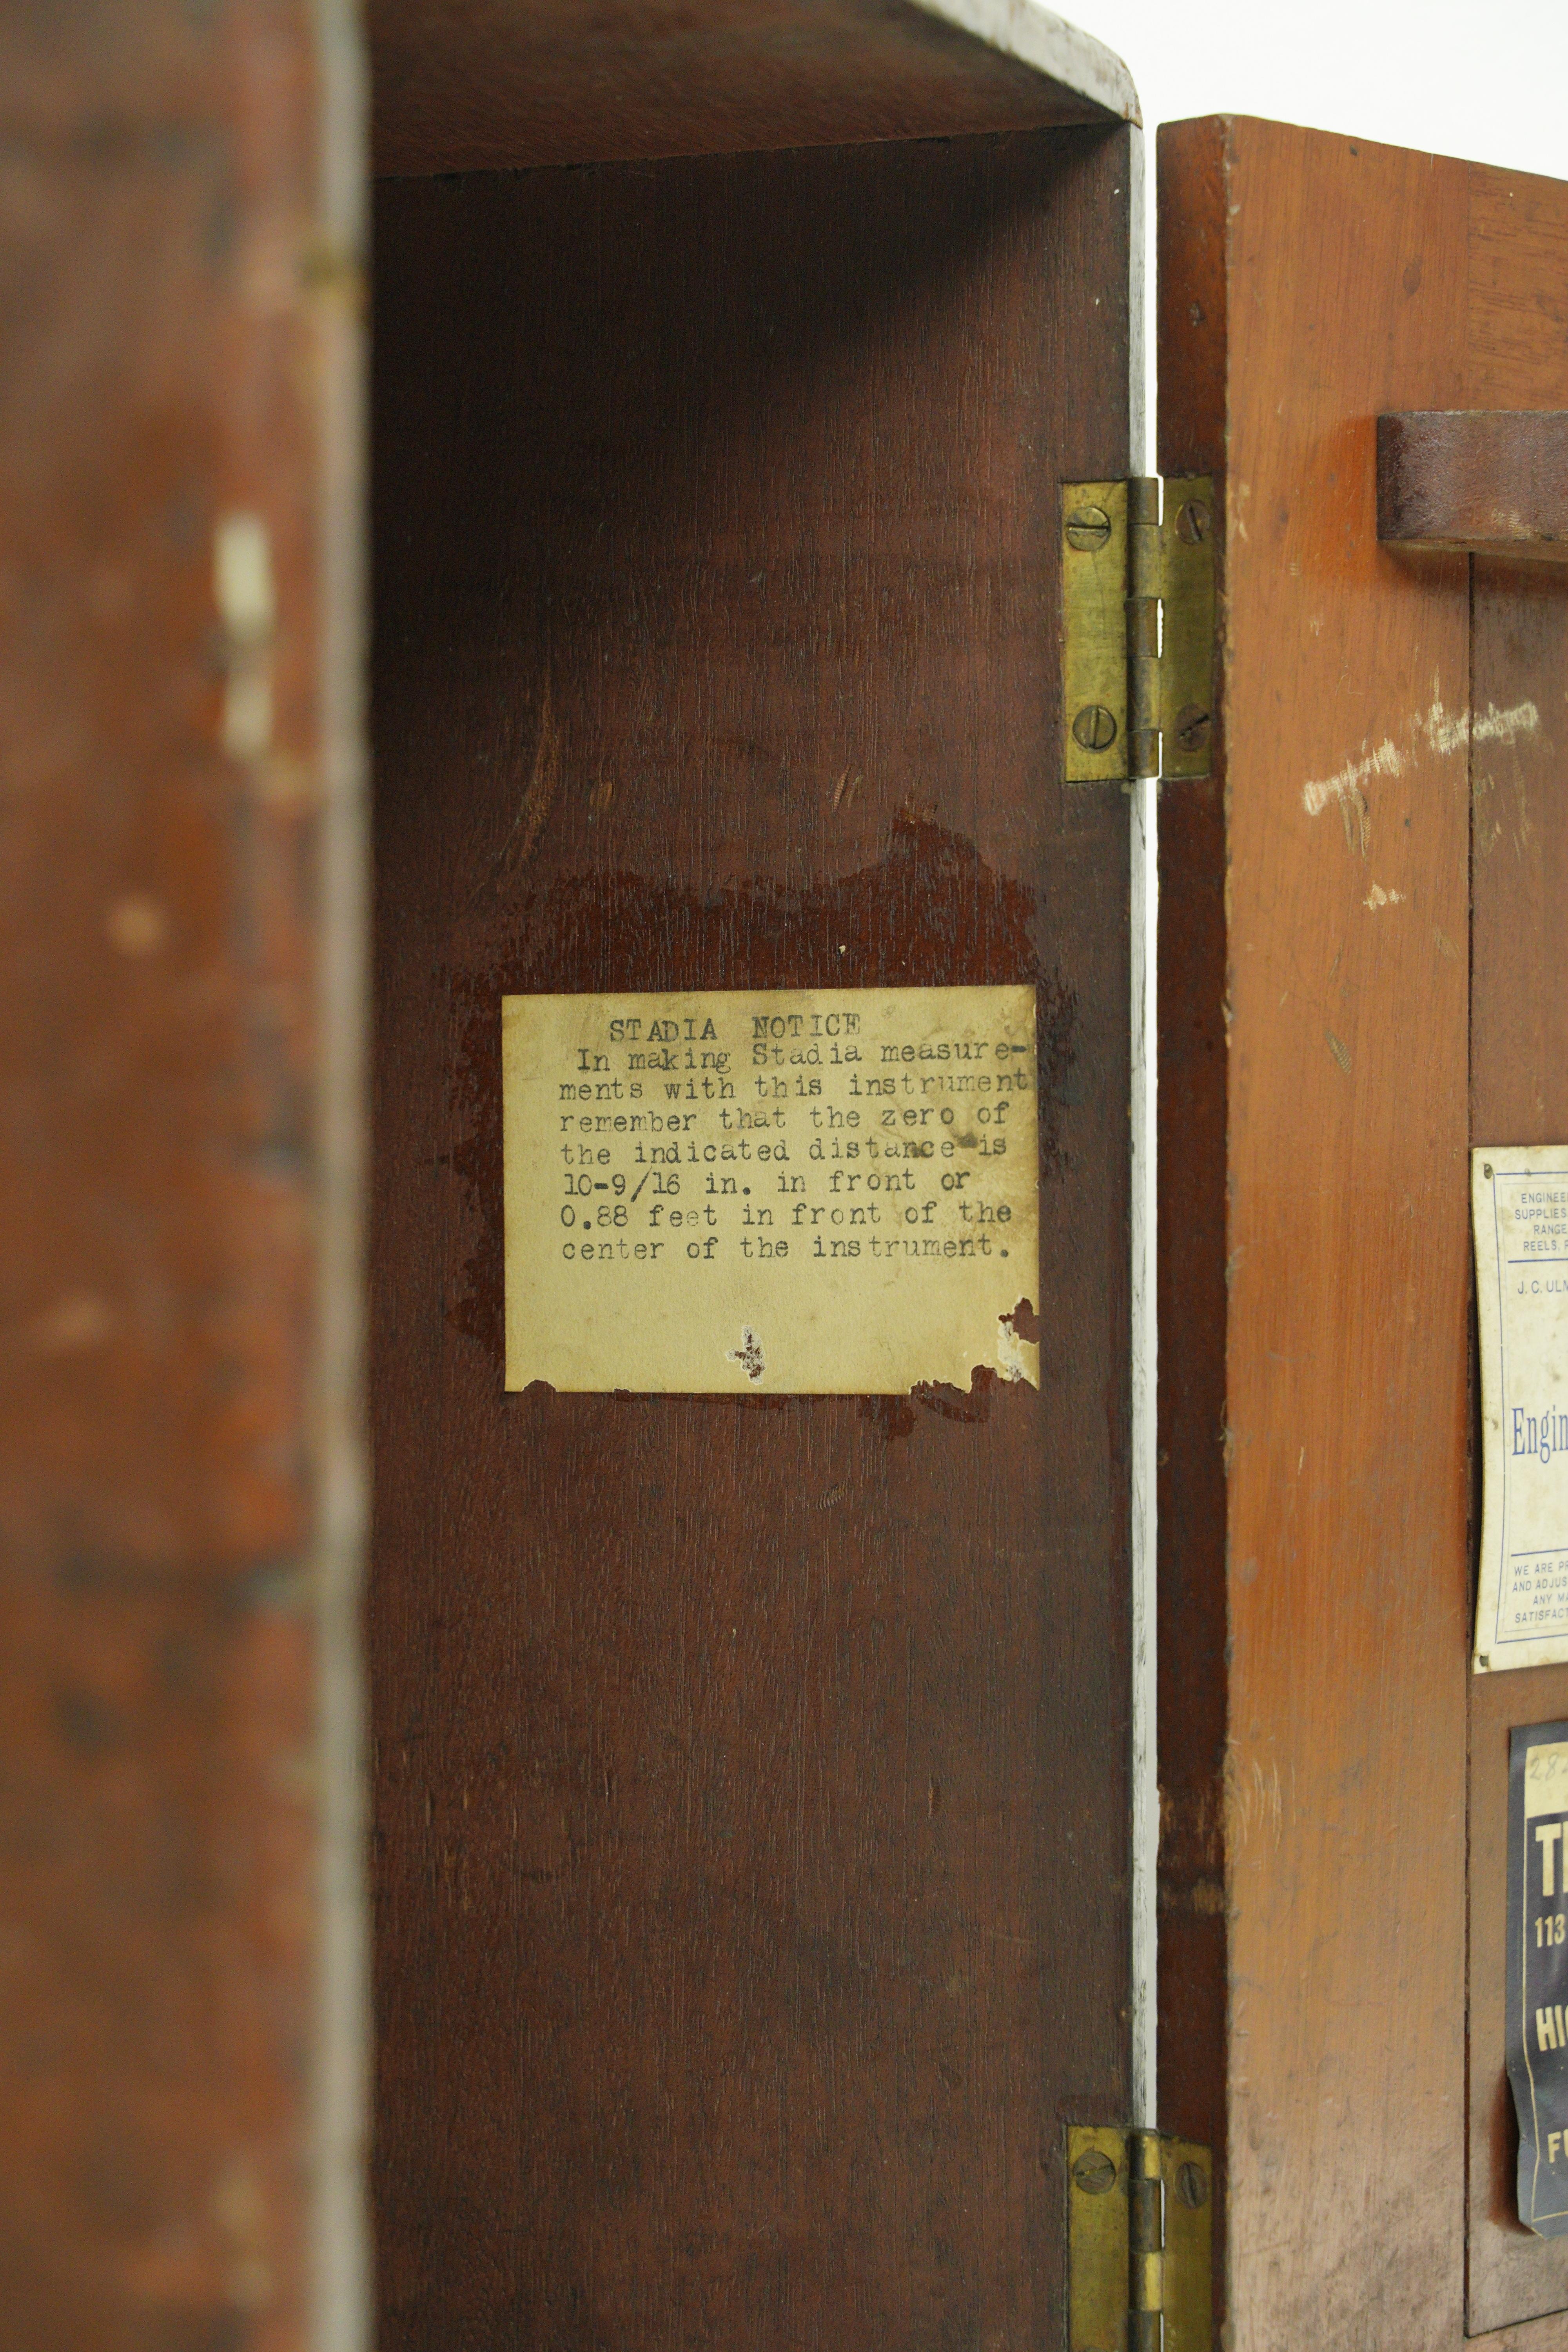 STADIA NOTICE
In making Stadia measure-
ments with this instrument
remember that the zero of
the indicated distance is
10-9/16 in. in front or
0.88 feet in front of the
center of the instrument.
SUPPLIES
RANGE
REELS,
J. C. ULM
Engin
WE ARE
AND ADJUS
ANY
SATISFACT
113